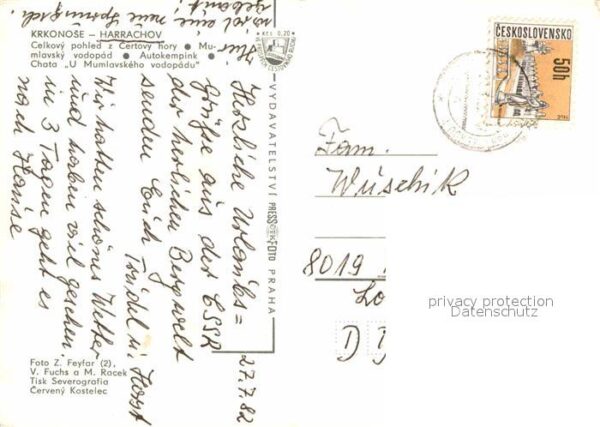 KRKONOŠE – HARRACHOV
Celkový pohled z Čertovy hory ● Mu-
mlavský vodopád ● Autokempink ●
Chata „U Mumlavského vodopádu"
Kčs 0,20
ČESKOSLOVENSKO
50h
VYDAVATELSTVÍ PRESSFOTO PRAHA
27.7.82
Herzliche Urlaubs=
grüße aus der CSSR
der herlichen Bergwelt
senden Euch
Trudel u. Horst
Wir hatten schönes Wetter
und haben viel gesehen.
in 3 Tagen geht es
nach Hause
Fam.
Wuschik
8019
privacy protection
Datenschutz
Foto Z. Feyfar (2),
V. Fuchs a M. Racek
Tisk Severografia
Červený Kostelec